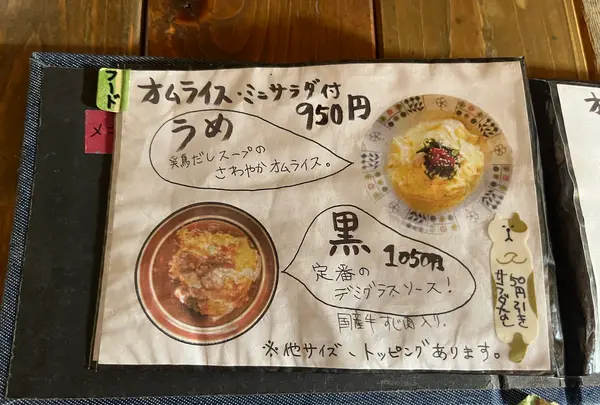 フード
メニ
オムライス・ミニサラダ付
950円
うめ
鶏だしスープの
さわやかオムライス。
黒
1050円
定番の
デミグラスソース!
国産牛すじ肉入り。
※他サイズ、トッピングあります。
サラダなし
50円引き